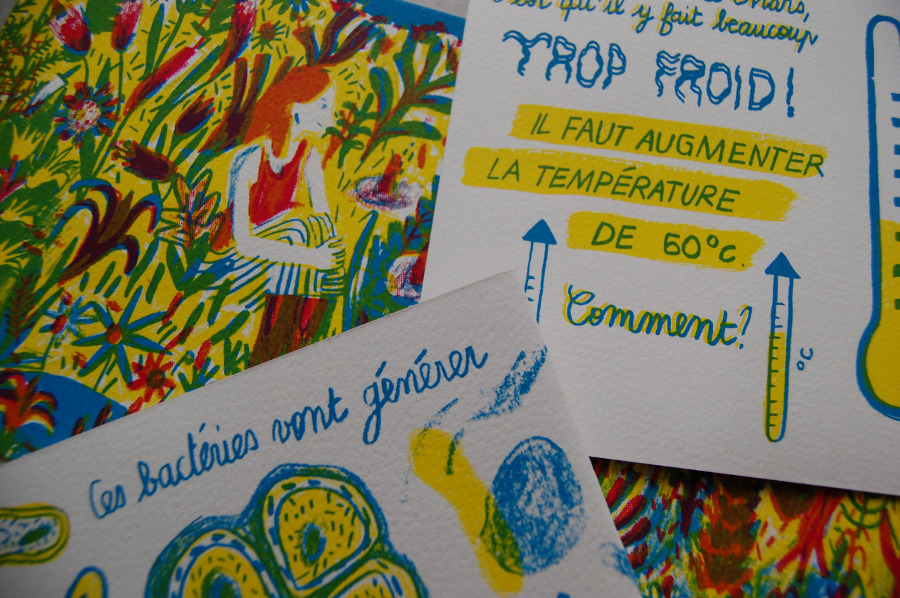 Mars,
c'est qu'il y fait beaucoup
TROP FROID!
IL FAUT AUGMENTER
LA TEMPÉRATURE
DE 60°C.
Comment?
°C
Ces bactéries vont générer